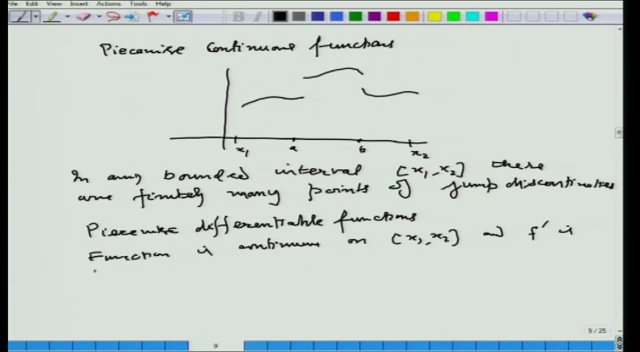 View Insert Actions Tools Help
Piecewise continuous functions
x₁ a b x₂
In any bounded interval [x₁, x₂] there
are finitely many points of jump discontinuities
Piecewise differentiable functions
Function is continuous on [x₁, x₂] and f' is
9 / 25
9